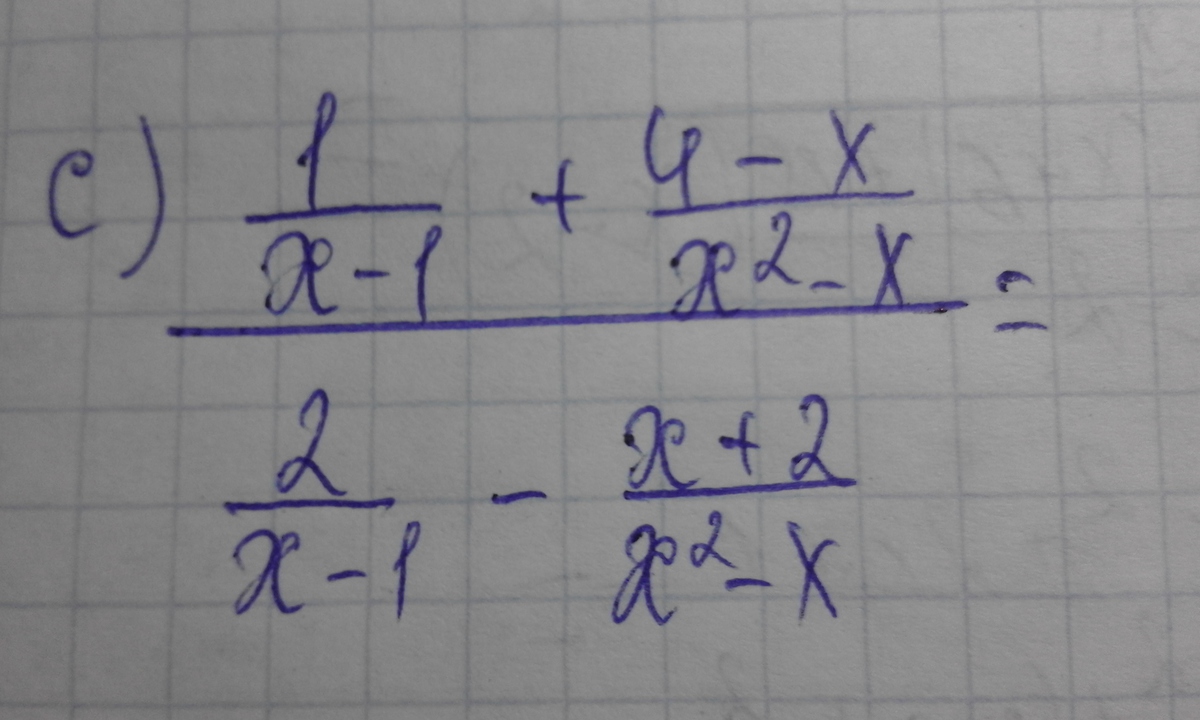 c) 1/(x-1) + (4-x)/(x²-x) =
2/(x-1) - (x+2)/(x²-x)